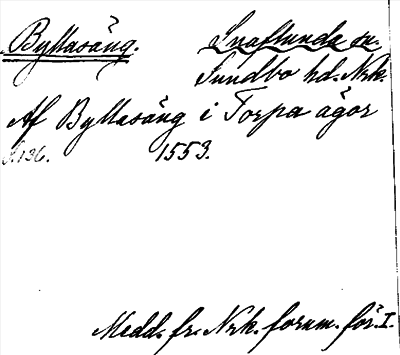 Byllasäng. Snaflunda sn.
Sundbo hd. Nrk.
Af Byllasäng i Torpa ägor
S. 136. 1553.
Medd. fr. Nrk. fornm. för. I.